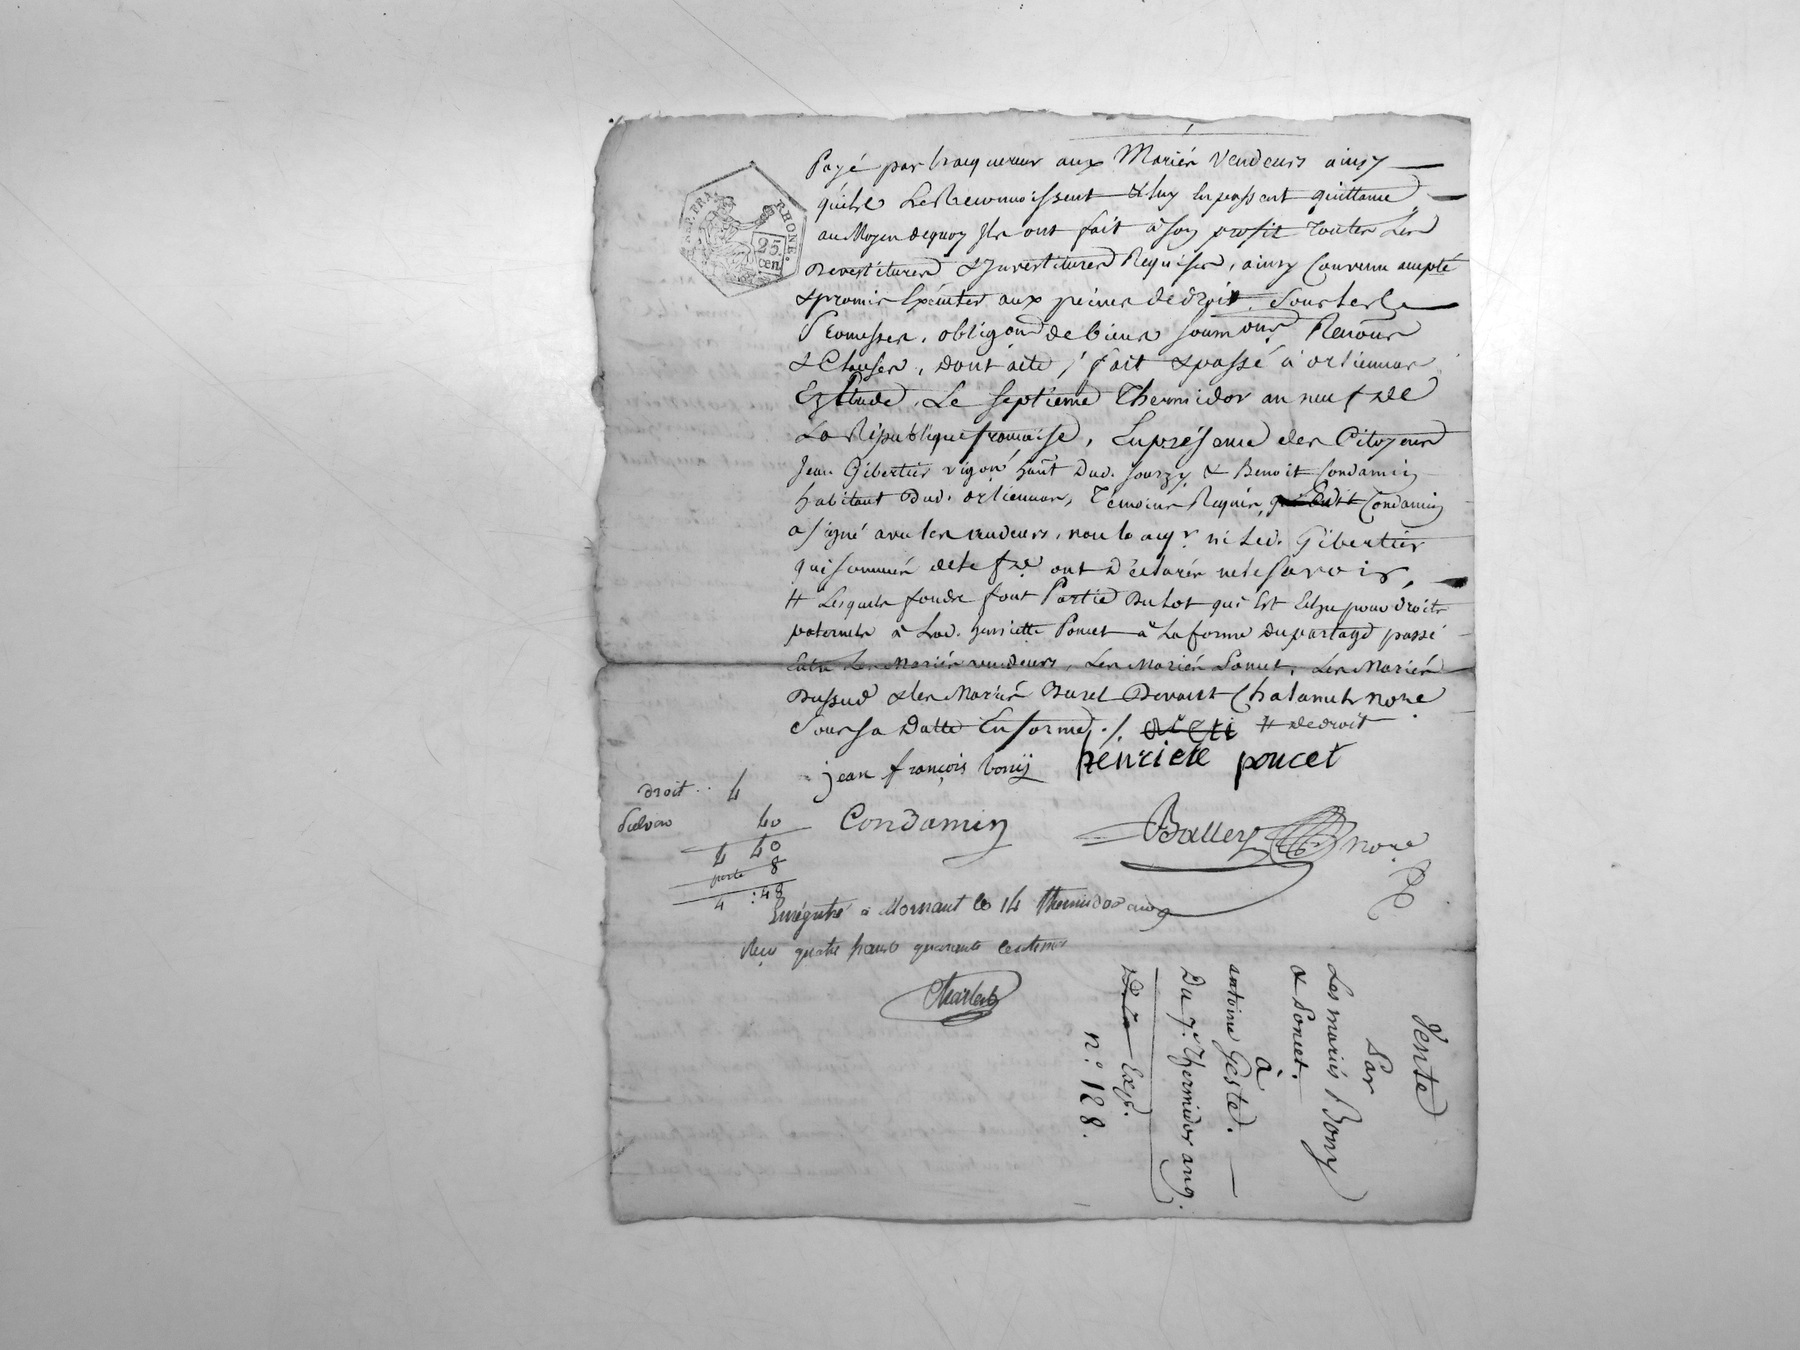 RÉP. FRA.
RHONE.
25
cen.
Payé par l'acquereur aux Mariés Vendeurs ainsy
qu'ils Le Reconnoissent & luy en passent quittance
au Moyen dequoy Ils ont fait à son profit Toutes Les
Devestitures & Investitures Requises, ainsy Convenu accepté
& promis Exécuter aux peines de droit, Sous Les
Promesses, obligaons de biens soumons Renons
& Clauses, dont acte, fait & passé à orlienas
Etude, Le septieme Thermidor an neuf de
La République francoise, En présence des Citoyens
Jean Gibertier vigon habt Dud. & Benoit Condamin
habitant Dud. orlienas, Temoins Requis, Condamin
a signé avec les vendeurs, non le aqr ni Led. Gibertier
qui sommés de le fre ont Déclarés ne le savoir,
# Lesquels fonds font Partie Du Lot qui Est Echu pour droits
paternels à Lad. henriette Poncet à La forme du partage passé
Entre Les Mariés vendeurs, Les Mariés Poncet, Les Mariés
Dussud & les Mariés Burel Devant Chalamel no.re
Sous sa Datte En forme ./. # de droit
jean françois bonij henriete poncet
droit .. 4
Subvon 40
4 40
porte 8
4 : 48
Condamin Ballezy no.re
Enrégistré à Mornant le 14 thermidor an 9
Reçu quatre francs quarante centimes
Charlet
Vente
Par
Les mariés Bony
& Poncet.
à
antoine Geste.
Du 7.e Thermidor an 9.
Exp.
n.o 128.